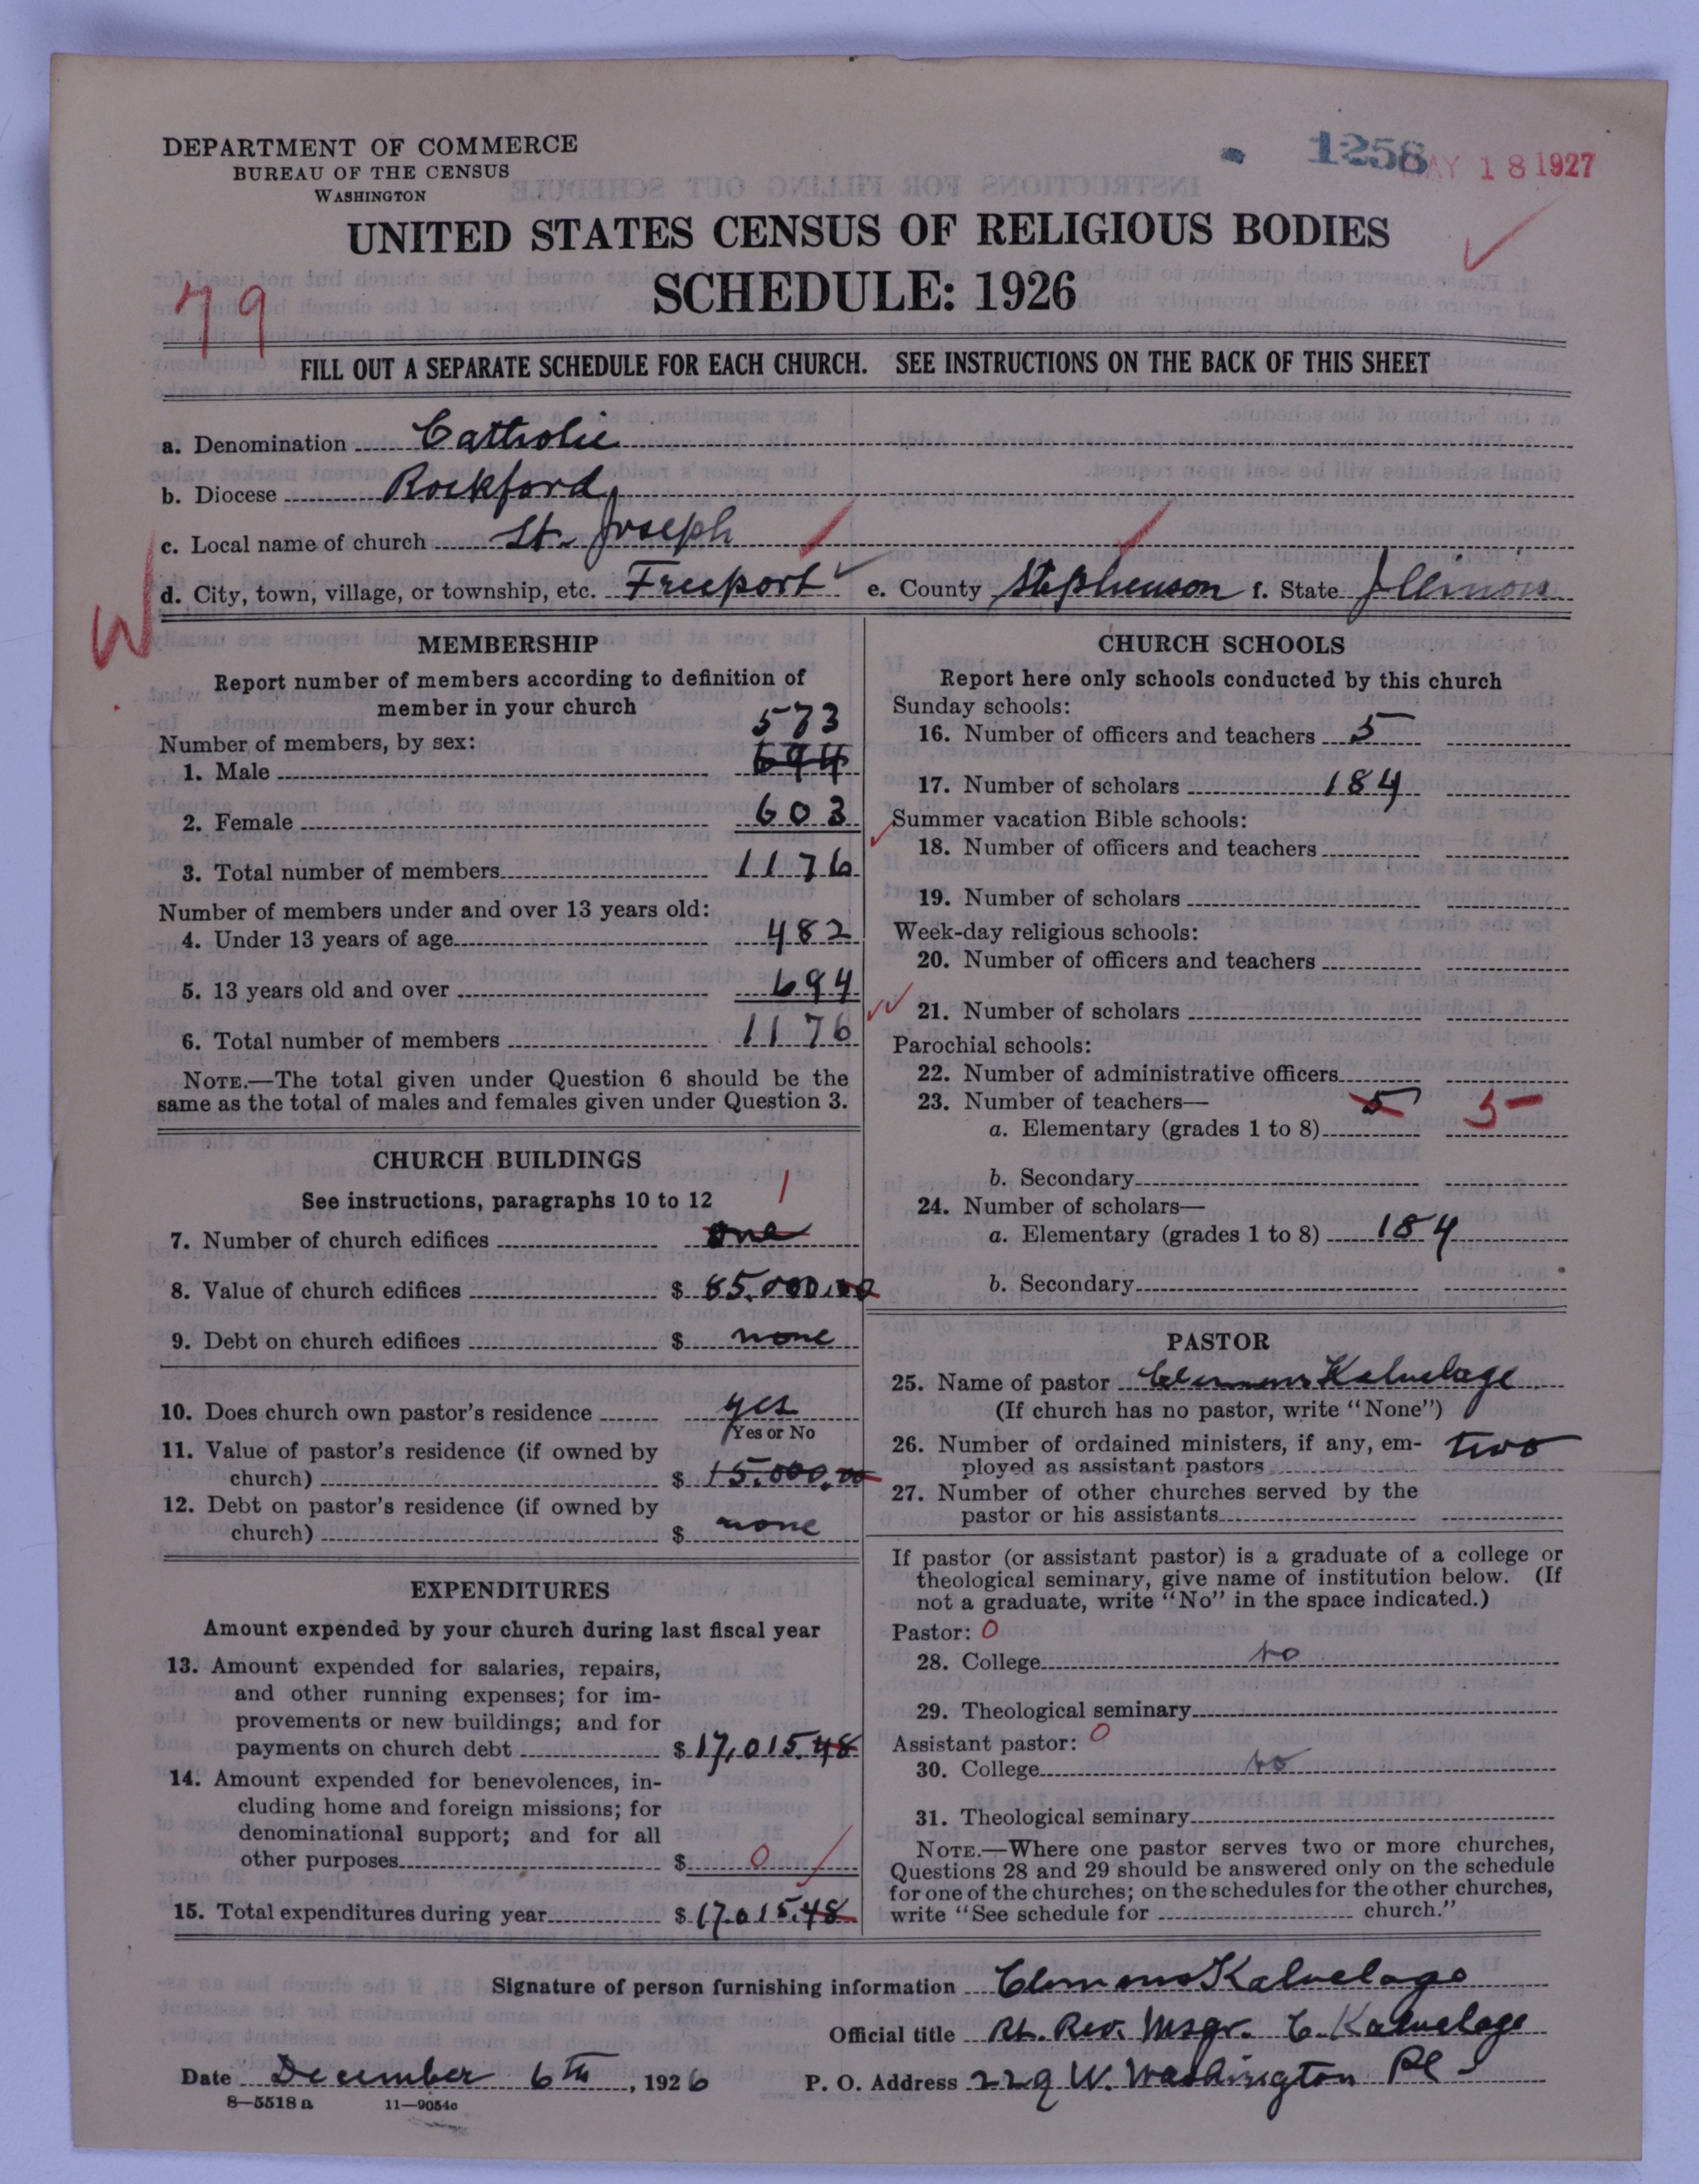 DEPARTMENT OF COMMERCE
BUREAU OF THE CENSUS
WASHINGTON
1258
MAY 18 1927
UNITED STATES CENSUS OF RELIGIOUS BODIES
SCHEDULE: 1926
79
FILL OUT A SEPARATE SCHEDULE FOR EACH CHURCH. SEE INSTRUCTIONS ON THE BACK OF THIS SHEET
a. Denomination Catholic
b. Diocese Rockford
c. Local name of church St. Joseph
d. City, town, village, or township, etc. Freeport e. County Stephenson f. State Illinois
W
MEMBERSHIP
Report number of members according to definition of
member in your church
573
Number of members, by sex:
1. Male 694
2. Female 603
3. Total number of members 1176
Number of members under and over 13 years old:
4. Under 13 years of age 482
5. 13 years old and over 694
6. Total number of members 1176
NOTE.—The total given under Question 6 should be the
same as the total of males and females given under Question 3.
CHURCH BUILDINGS
See instructions, paragraphs 10 to 12 1
7. Number of church edifices one
8. Value of church edifices $ 85.000.00
9. Debt on church edifices $ none
10. Does church own pastor's residence yes
Yes or No
11. Value of pastor's residence (if owned by
church) $ 15.000.00
12. Debt on pastor's residence (if owned by
church) $ none
EXPENDITURES
Amount expended by your church during last fiscal year
13. Amount expended for salaries, repairs,
and other running expenses; for im-
provements or new buildings; and for
payments on church debt $ 17,015.48
14. Amount expended for benevolences, in-
cluding home and foreign missions; for
denominational support; and for all
other purposes $ 0
15. Total expenditures during year $ 17.015.48
CHURCH SCHOOLS
Report here only schools conducted by this church
Sunday schools:
16. Number of officers and teachers 5
17. Number of scholars 184
Summer vacation Bible schools:
18. Number of officers and teachers
19. Number of scholars
Week-day religious schools:
20. Number of officers and teachers
21. Number of scholars
Parochial schools:
22. Number of administrative officers
23. Number of teachers—
a. Elementary (grades 1 to 8) 5 5
b. Secondary
24. Number of scholars—
a. Elementary (grades 1 to 8) 184
b. Secondary
PASTOR
25. Name of pastor Clemens Kalvelage
(If church has no pastor, write "None")
26. Number of ordained ministers, if any, em-
ployed as assistant pastors two
27. Number of other churches served by the
pastor or his assistants
If pastor (or assistant pastor) is a graduate of a college or
theological seminary, give name of institution below. (If
not a graduate, write "No" in the space indicated.)
Pastor: 0
28. College no
29. Theological seminary
Assistant pastor: 0
30. College no
31. Theological seminary
NOTE.—Where one pastor serves two or more churches,
Questions 28 and 29 should be answered only on the schedule
for one of the churches; on the schedules for the other churches,
write "See schedule for church."
Signature of person furnishing information Clemens Kalvelage
Official title Rt. Rev. Msgr. C. Kalvelage
Date December 6th, 1926 P. O. Address 229 W. Washington Pl
8—5518 a 11—9054c